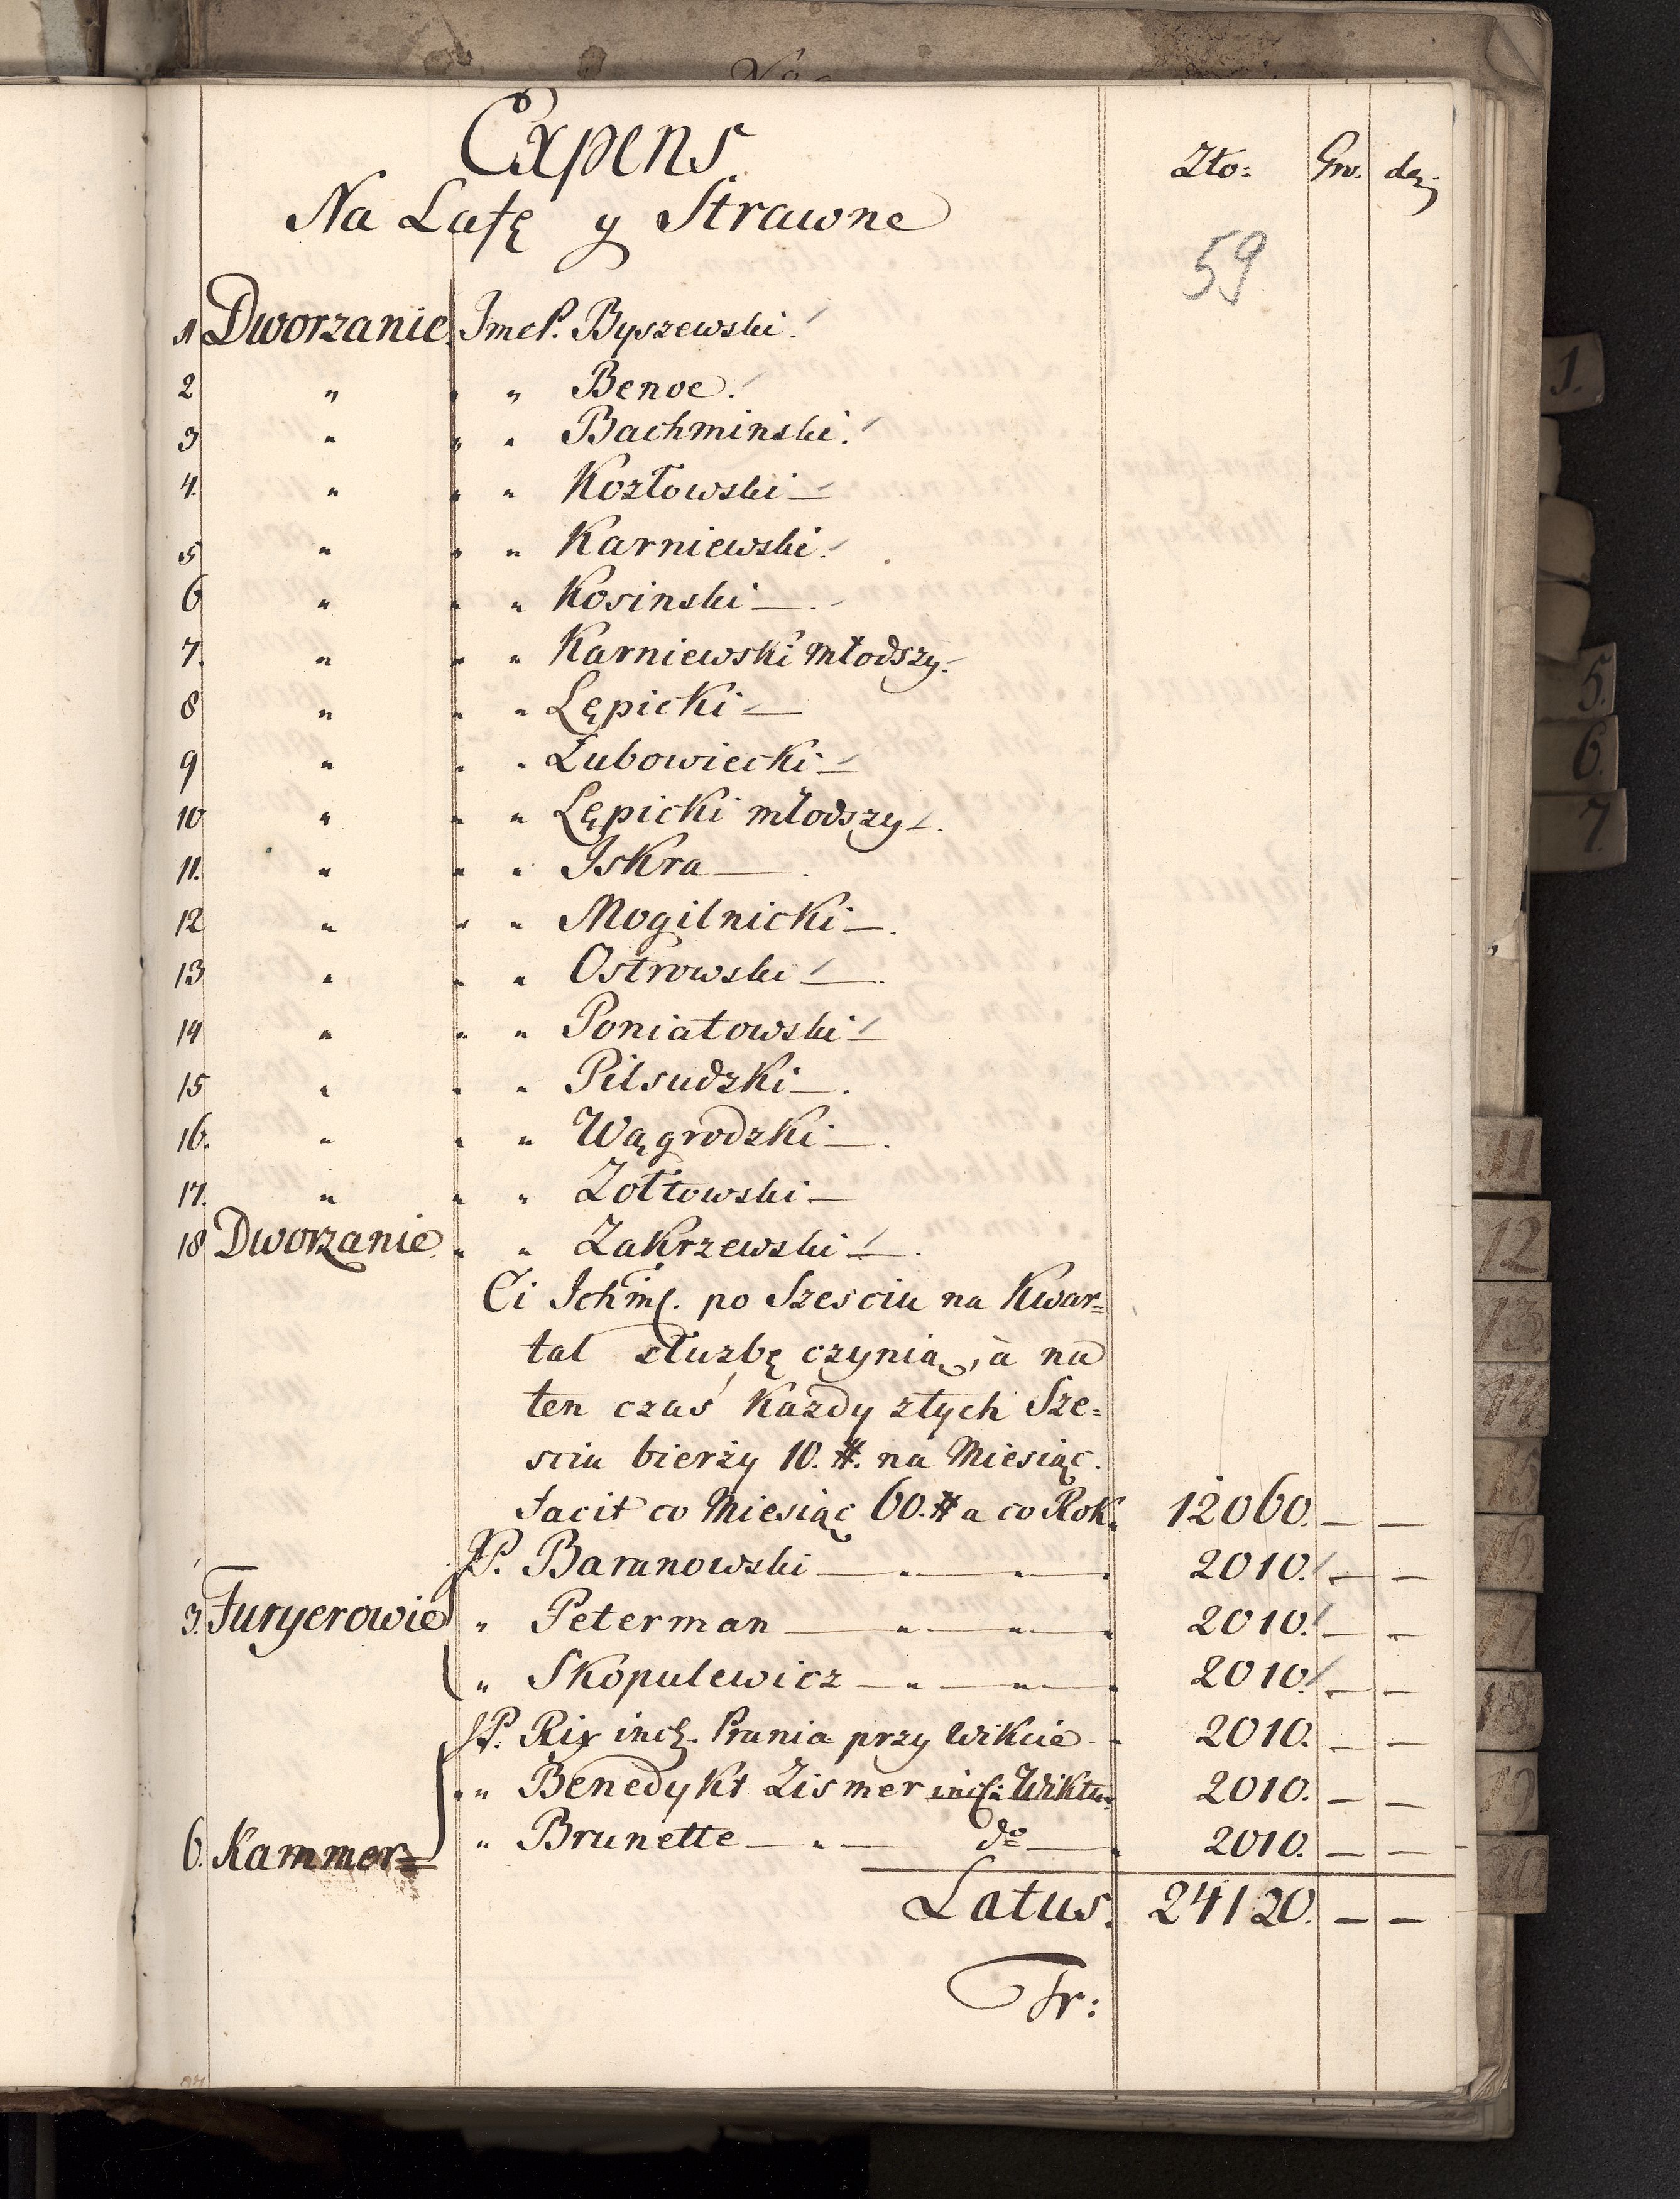 Expens
Na Lafę y Strawne
Zło: Gro. den:
59
1 Dworzanie. JmcP. Byszewski.
2 " " " Benoe.
3 " " " Bachminski.
4. " " " Kozłowski —
5 " " " Karniewski.
6 " " " Kosinski —.
7. " " " Karniewski młodszy.
8 " " " Lępicki —
9 " " " Lubowiecki —
10 " " " Lępicki młodszy —.
11. " " " Iskra —.
12 " " " Mogilnicki —.
13 " " " Ostrowski —.
14 " " " Poniatowski —
15 " " " Pilsudzki —.
16. " " " Wągrodzki —.
17. " " " Zołtowski —
18 Dworzanie. " " Zakrzewski —.
Ci Ichmć. po Szesciu na Kwar=
tał słuzbę czynią, à na
ten czas Kazdy ztych Sze=
sciu bierzy 10. #. na Miesiąc.
facit co Miesiąc 60. # a co Rok. 12060. — —
JP. Baranowski — " — " — 2010. — —
3. Furyerowie " Peterman — " — " — 2010. — —
" Skopulewicz — " — " — 2010. — —
JP. Rix incl. Prania przy Wikcie - 2010. — —
" " Benedykt Zismer incl: Wiktu 2010. — —
6. Kammer= " Brunette — " — do — 2010. — —
Latus. 24120. — —
Fr:
1.
5.
6.
7.
11
12
13
14
15
16
17
18
19
20